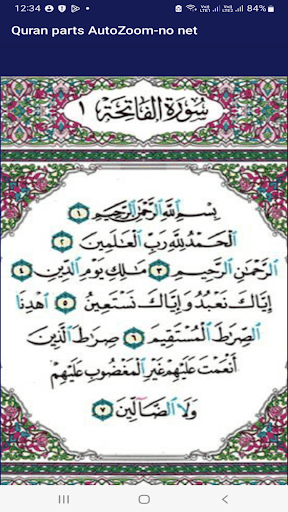 12:34 84%
Quran parts AutoZoom-no net
سُورَةُ الفَاتِحَةِ ١
بِسْمِ ٱللَّهِ ٱلرَّحْمَٰنِ ٱلرَّحِيمِ ١
ٱلْحَمْدُ لِلَّهِ رَبِّ ٱلْعَٰلَمِينَ ٢
ٱلرَّحْمَٰنِ ٱلرَّحِيمِ ٣ مَٰلِكِ يَوْمِ ٱلدِّينِ ٤
إِيَّاكَ نَعْبُدُ وَإِيَّاكَ نَسْتَعِينُ ٥ ٱهْدِنَا
ٱلصِّرَٰطَ ٱلْمُسْتَقِيمَ ٦ صِرَٰطَ ٱلَّذِينَ
أَنْعَمْتَ عَلَيْهِمْ غَيْرِ ٱلْمَغْضُوبِ عَلَيْهِمْ
وَلَا ٱلضَّآلِّينَ ٧